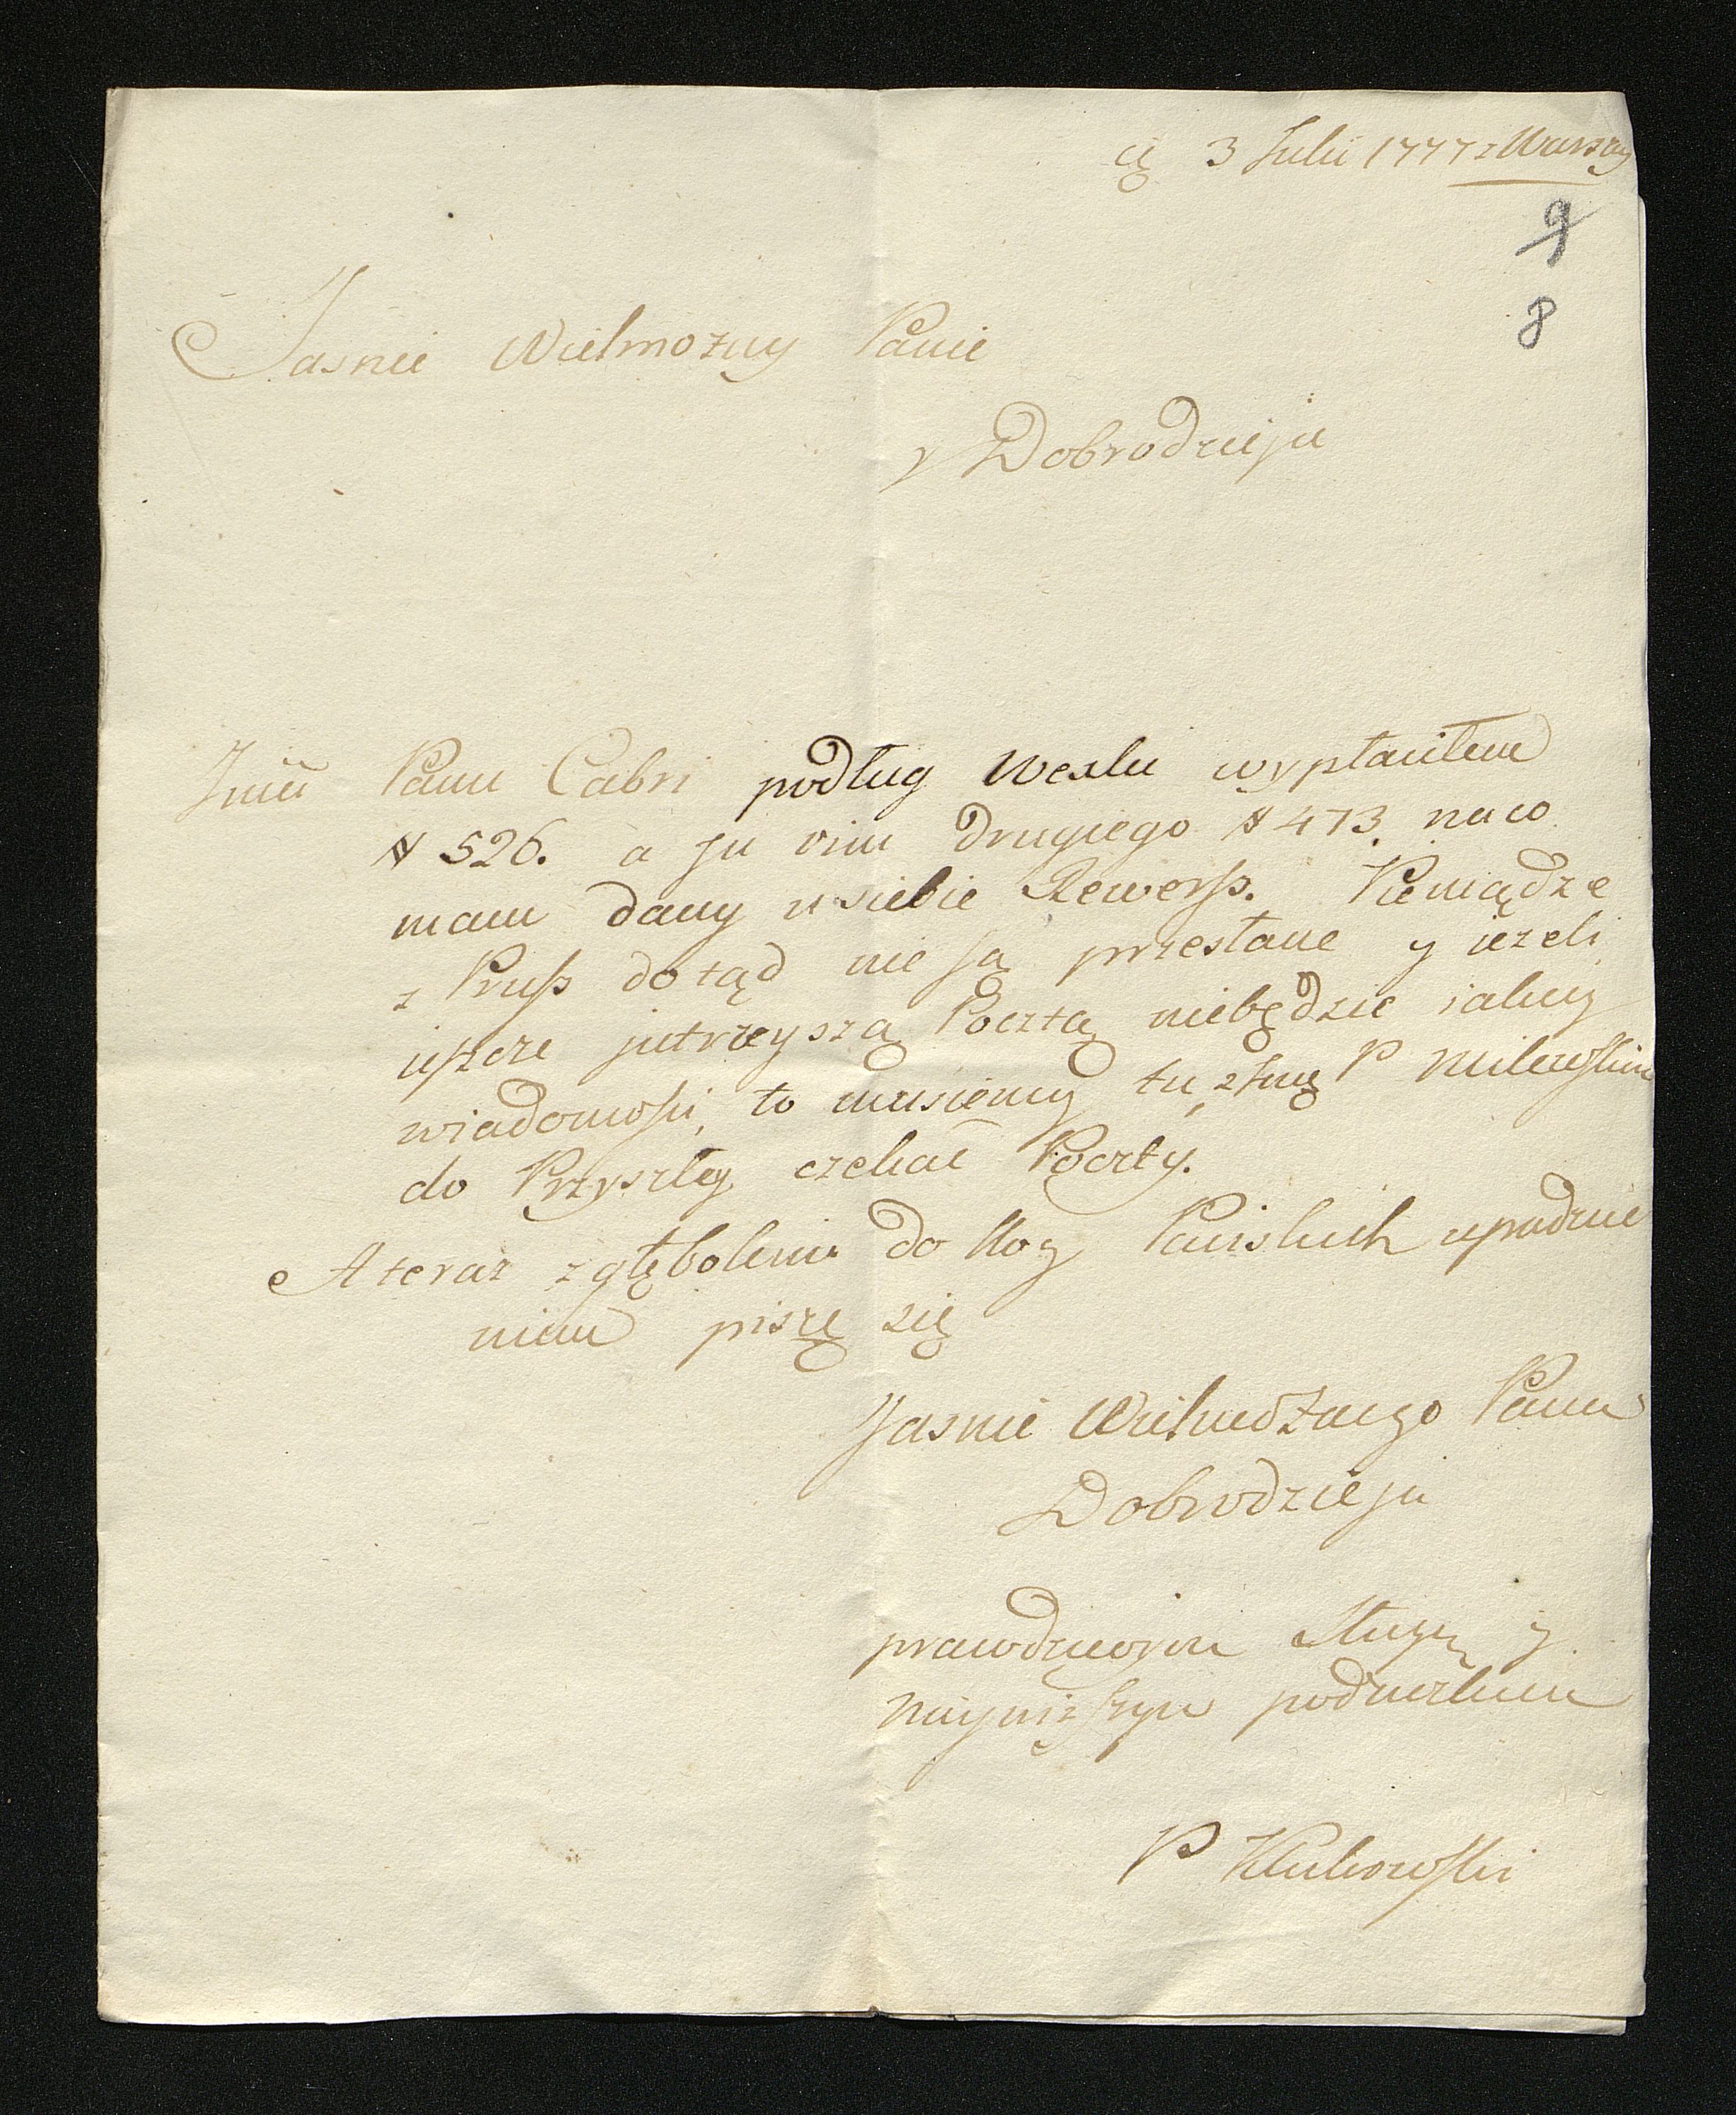 3 Julii 1777 z Warszwy
9
8
Jasnie Wielmozny Panie
y Dobrodzieju
Jmci Panu Cabri podług Wexlu wypłaciłem
# 526. a ju vim drugiego # 473. na co
mam dany u siebie Rewerss. Pieniądze
z Pruss dotąd nie są przesłane y iezeli
ieszcze jutrzeyszą Pocztą niebędzie iakiey
wiadomosci, to musiemy tu z Jmę P Milewskim
do Przyszłey czekać Poczty.
A teraz z głębokim do Nog Panskich upadnie
niem piszę się
Jasnie Wielmożnego Pana
Dobrodzieja
prawdziwym sługą y
nayniższym podnożkiem
P Klukowski